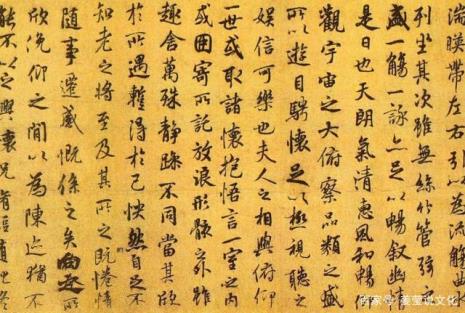 湍暎帶左右引以為流觴曲
列坐其次雖無絲竹管弦之
盛一觴一詠亦足以暢敘幽情
是日也天朗氣清惠風和暢仰
觀宇宙之大俯察品類之盛
所以遊目騁懷足以極視聽之
娛信可樂也夫人之相與俯仰
一世或取諸懷抱悟言一室之內
或因寄所託放浪形骸之外雖
趣舍萬殊靜躁不同當其欣
於所遇暫得於己怏然自足不
知老之將至及其所之既惓情
隨事遷感慨係之矣向之所
欣俛仰之間以為陳迹猶不
能不以之興懷況脩短隨化終
百家号/姜莹说文化